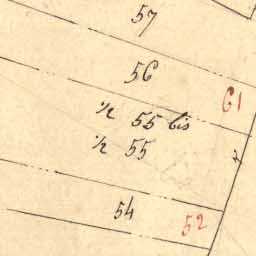 57
56
61
½ 55 bis
½ 55
54
52